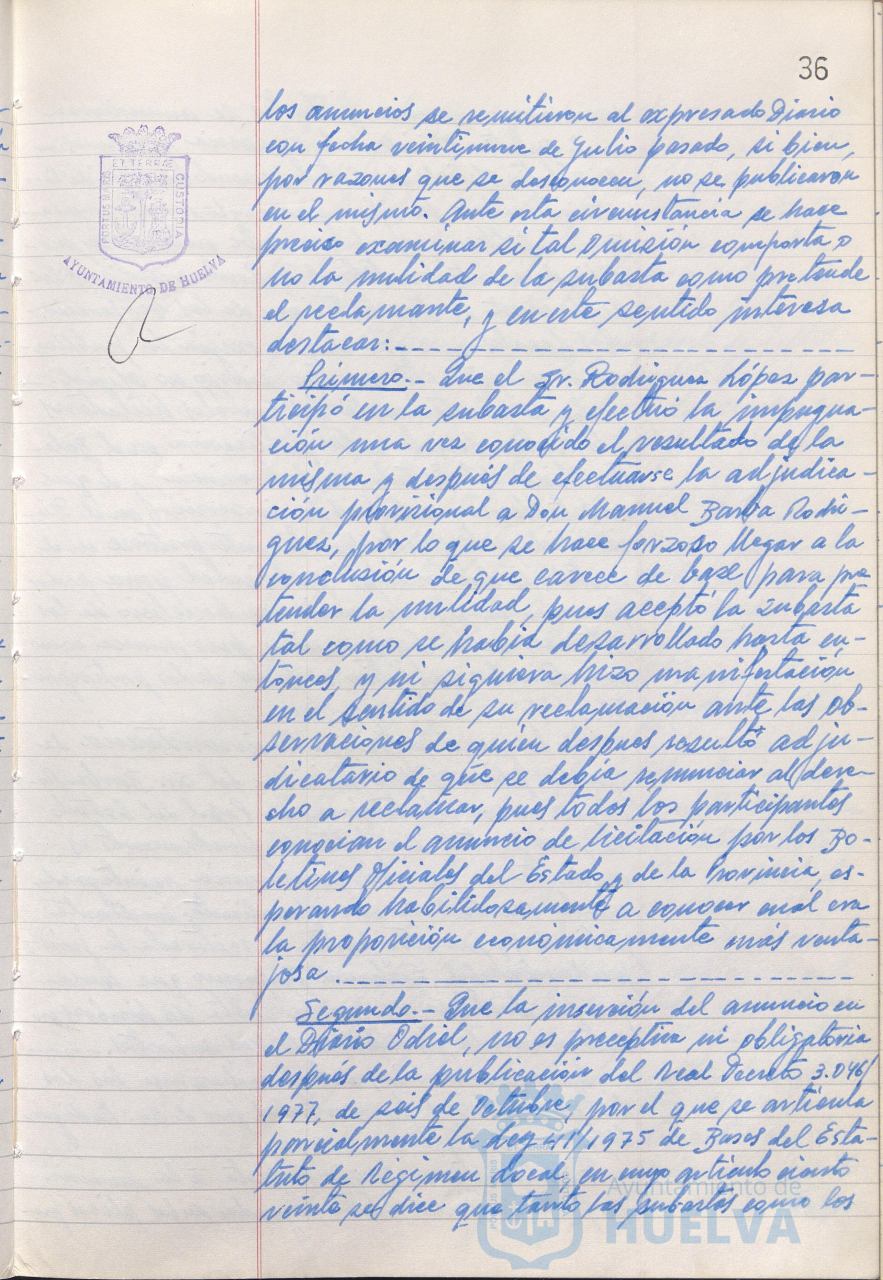 36
PORTUS MARIS
ET TERRAE
CUSTODIA
AYUNTAMIENTO DE HUELVA
los anuncios se remitieron al expresado Diario
con fecha veintinueve de Julio pasado, si bien,
por razones que se desconocen, no se publicaron
en el mismo. Ante esta circunstancia se hace
preciso examinar si tal omisión comporta o
no la nulidad de la subasta como pretende
el reclamante, y en este sentido interesa
destacar:
Primero.- Que el Sr. Rodríguez López par-
ticipó en la subasta y efectuó la impugna-
ción una vez conocido el resultado de la
misma y después de efectuarse la adjudica-
ción provisional a Don Manuel Barba Rodrí-
guez, por lo que se hace forzoso llegar a la
conclusión de que carece de base para pre
tender la nulidad, pues aceptó la subasta
tal como se había desarrollado hasta en-
tonces, y ni siquiera hizo manifestación
en el sentido de su reclamación ante las ob-
servaciones de quien despues resultó adju-
dicatario de que se debía renunciar al dere-
cho a reclamar, pues todos los participantes
conocian el anuncio de licitación por los Bo-
letines Oficiales del Estado y de la Provincia, es-
perando habilidosamente a conocer cual era
la proposición económicamente más venta-
josa.
Segundo.- Que la inserción del anuncio en
el Diario Odiel, no es preceptiva ni obligatoria
después de la publicación del Real Decreto 3.046/
1977, de seis de Octubre, por el que se articula
parcialmente la Ley 41/1975 de Bases del Esta-
tuto de Régimen Local, en cuyo artículo ciento
veinte se dice que tanto las subastas como los
Ayuntamiento de
HUELVA